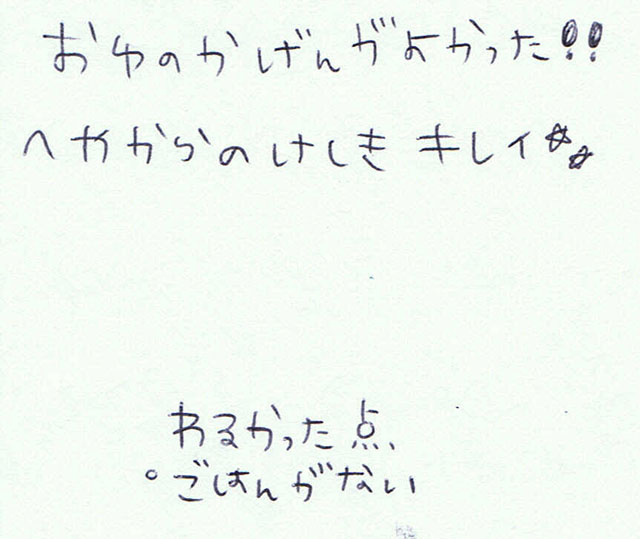 おゆのかげんがよかった!!
へやからのけしき キレイ☆☆
わるかった点、
○ごはんがない